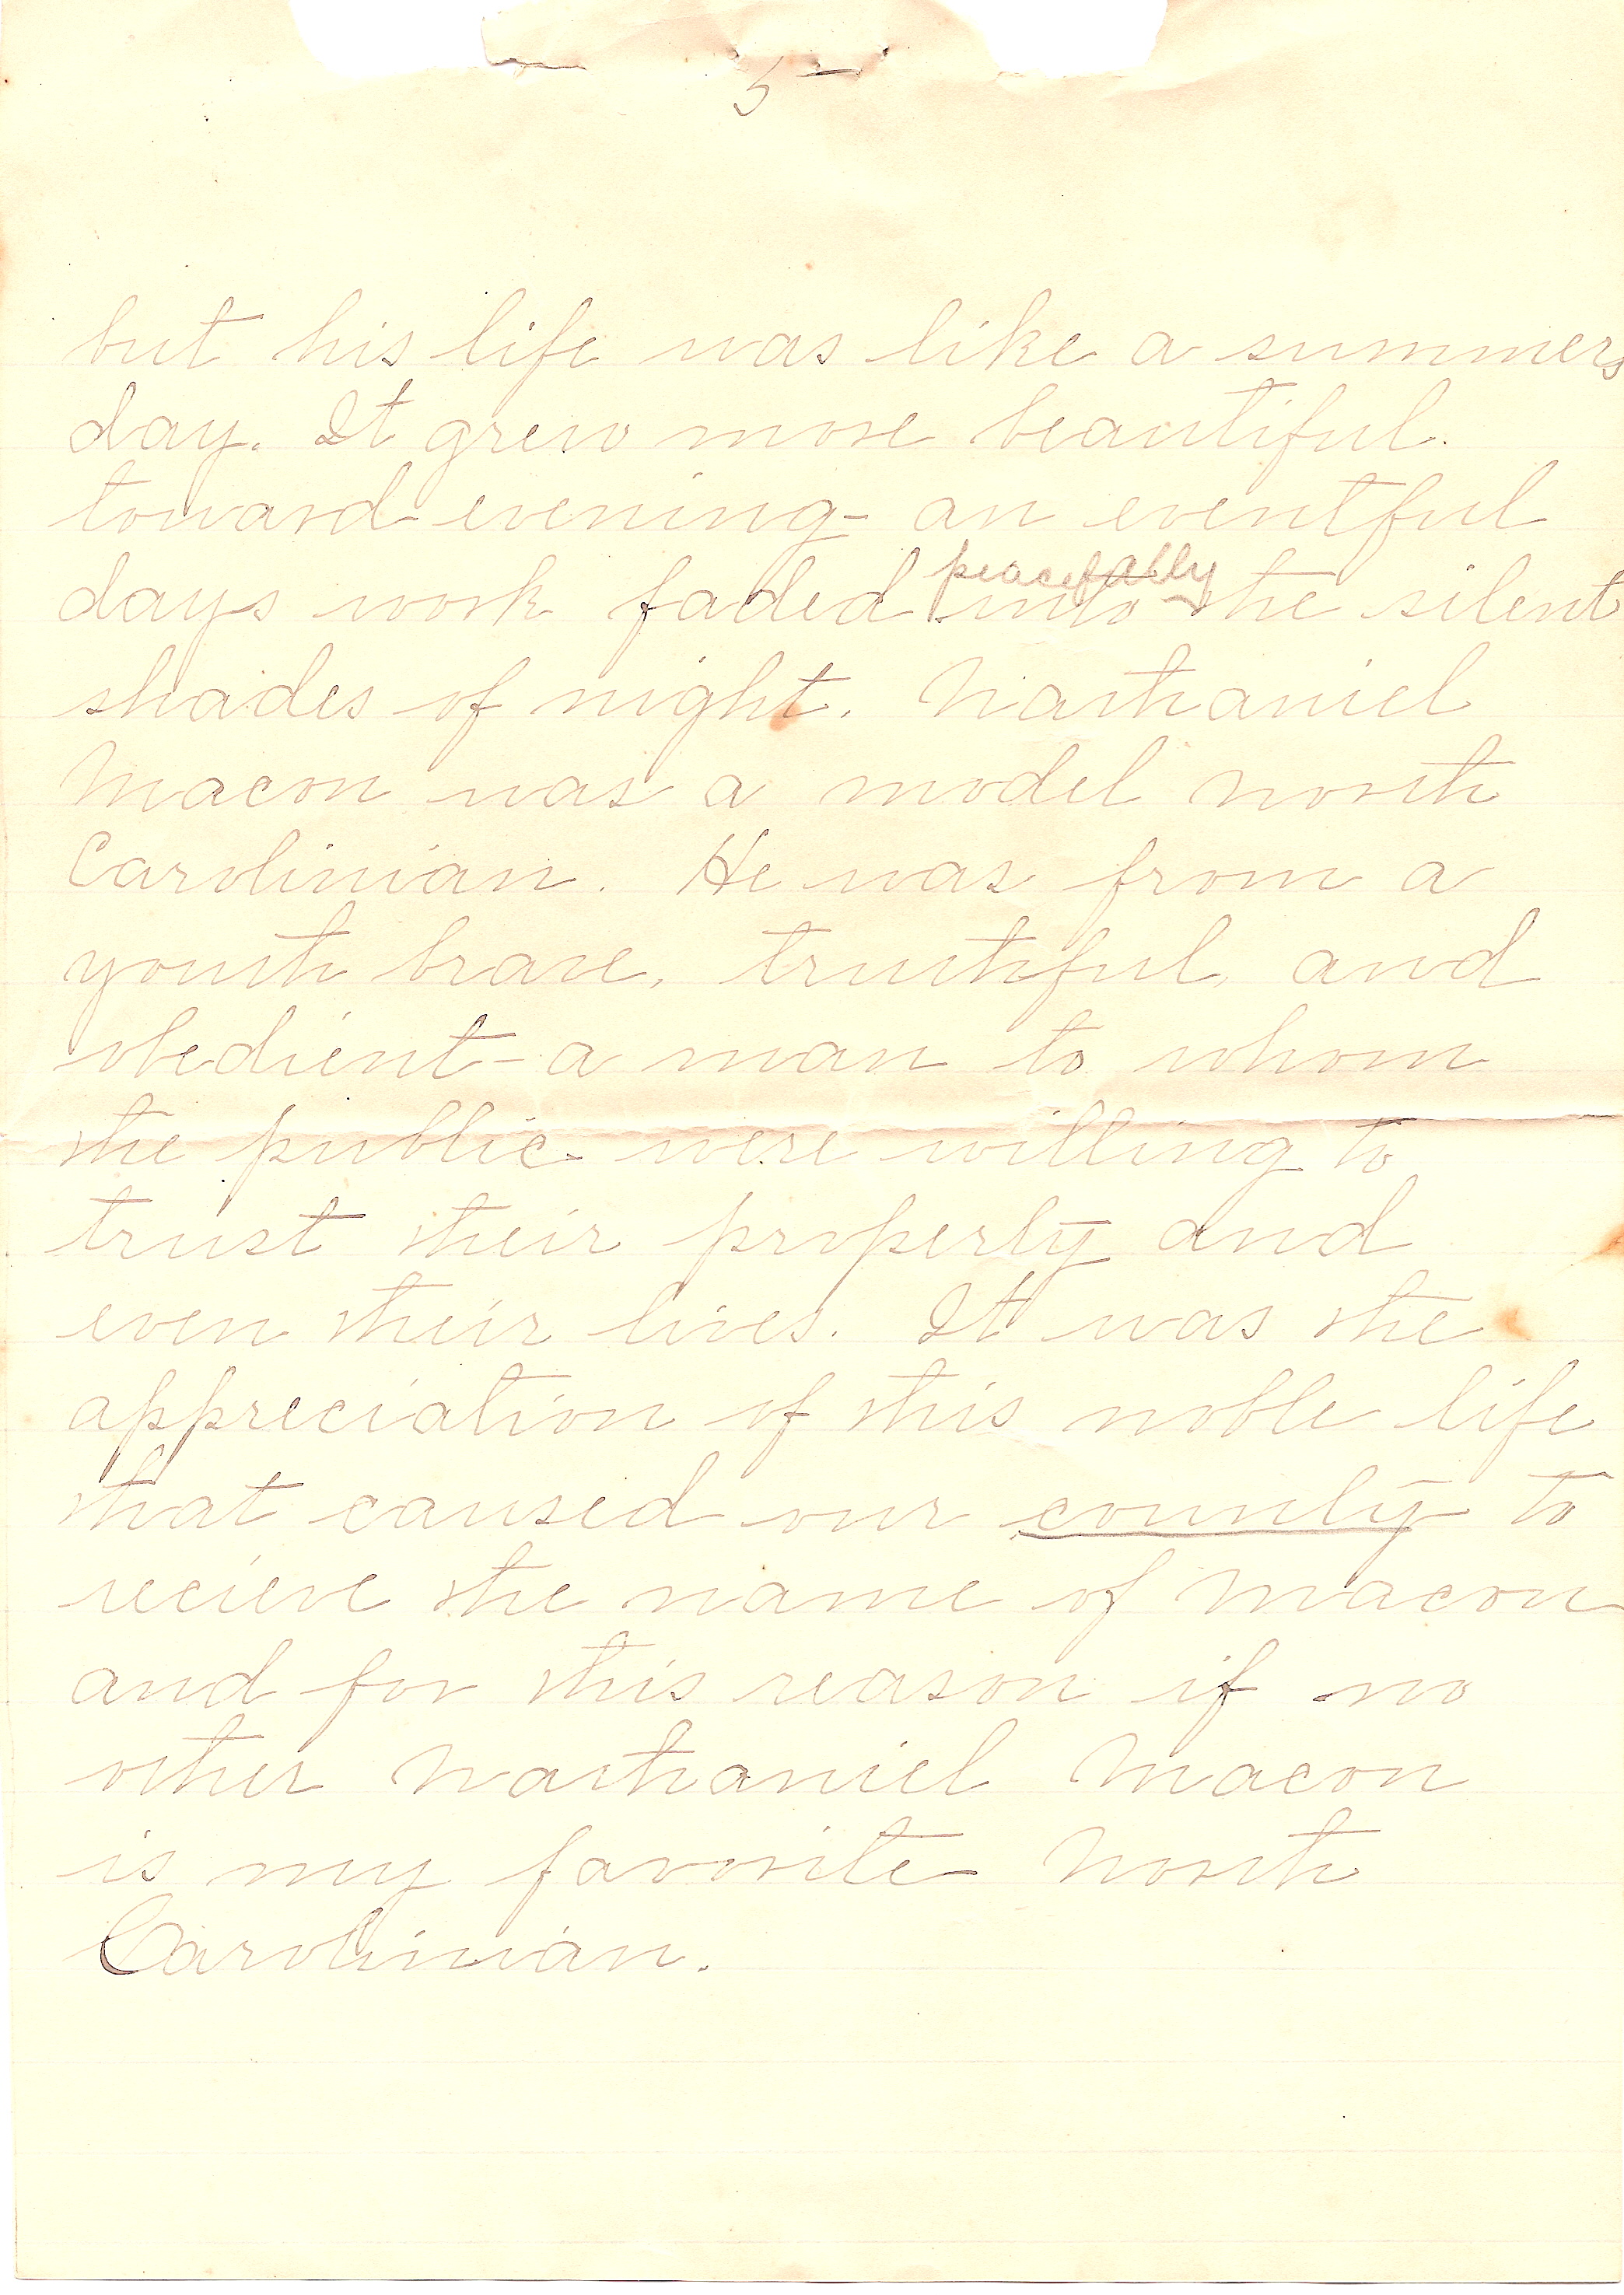 5
but his life was like a summers
day. It grew more beautiful.
toward evening - an eventful
peacefully
days work faded into the silent
shades of night. Nathaniel
Macon was a model north
Carolinian. He was from a
youth brave, truthful, and
obedient - a man to whom
the public were willing to
trust their property and
even their lives. It was the
appreciation of this noble life
that caused our county to
recieve the name of Macon
and for this reason if no
other Nathaniel Macon
is my favorite North
Carolinian.